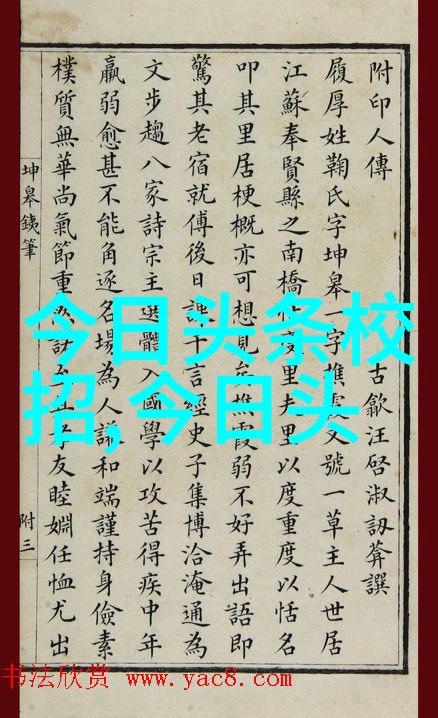 附印人傳
古歙汪啓淑訒葊譔
履厚姓鞠氏字坤皋一字樵霞又號一草主人世居
江蘇奉賢縣之南橋度里夫里以度重度以恬名
叩其里居梗概亦可想見矣樵霞弱不好弄出語即
驚其老宿就傅後日課千言經史子集博洽淹通為
文步趨八家詩宗主選體入國學以攻苦得疾中年
羸弱愈甚不能角逐名場為人謙和端謹持身儉素
樸質無華尚氣節重孝友睦婣任恤尤出
坤皋鐵筆
附三
今日头条校
招,今日头
书法欣赏 www.yac8.com